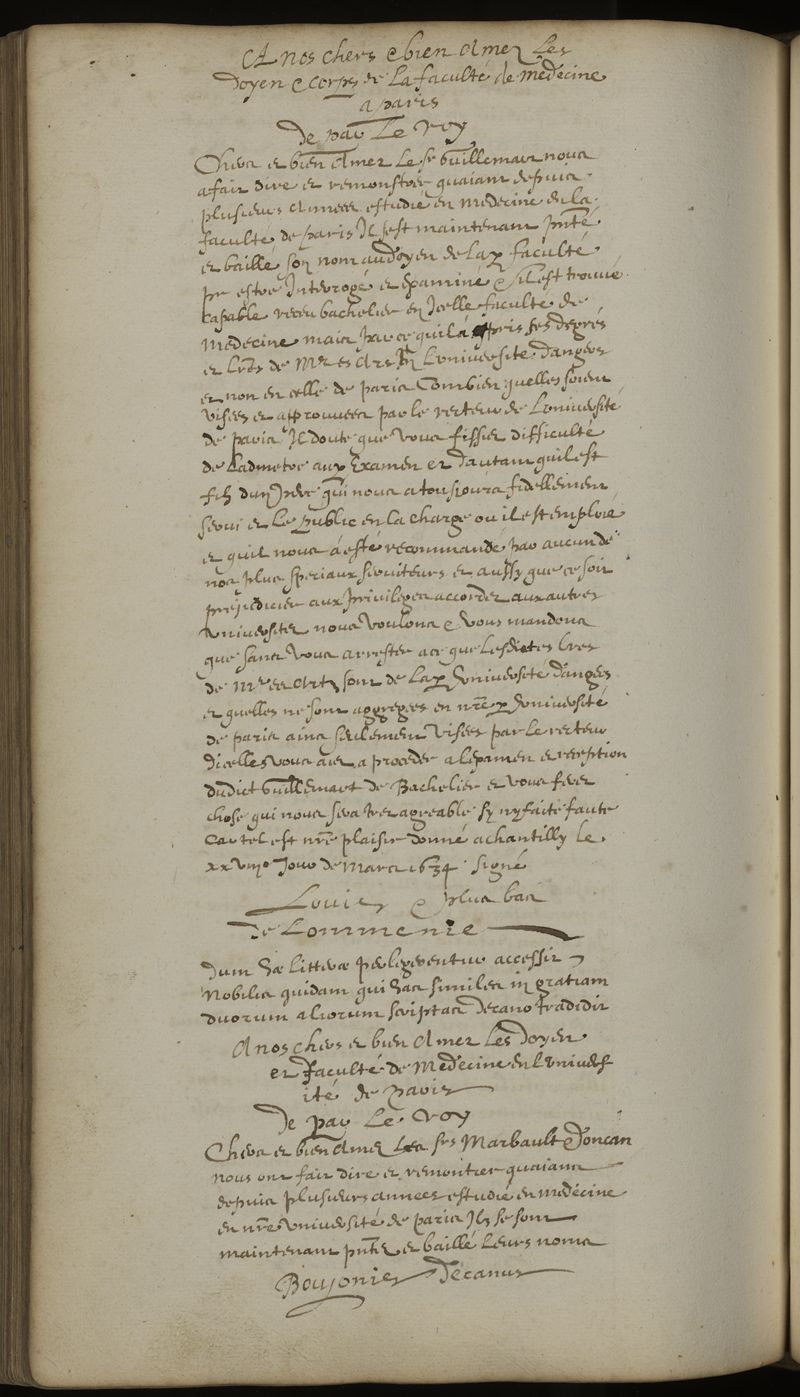 A nos chers et bien Amez Les
Doyen et corps de La faculté de Medecine
a paris
De par Le Roy
Chers et bien Amez Le sr Guillemau nous
a fait dire et remonstrer quaiant depuis
plusieurs Annees estudié en Medecine en la
faculté de paris Il sest maintenant pnté
et baillé son nom au Doyen de La p faculté
pr estre Interrogé et Examiné et sil est trouvé
capable receu bachelier en Icelle faculté de
Medecine mais parce quil a pris ses degrés
et Lres de Mre es Arts En Luniversité dangers
et non en celle de paris Combien quelles soient
visees et approuvees par le recteur de Luniversité
de paris Il doute que vous fissiez difficulté
de Ladmetre aux Examen et dautant quil est
filz dun pere qui nous a tousiours fidellement
servi et Le public en la charge ou il est emploié
et quil nous a esté recommandé par aucun de
nos plus speciaux serviteurs et aussy que ce soit
prejudicier aux privileges accordez aux autres
universitez nous voulons et vous mandons
que sans vous arrester a ce que Lesdictes Lres
de Mre es Arts sont de La p université dangers
et quelles ne sont aggregees en nre p université
de paris ains seulement visees par le recteur
dicelles vous aiez a proceder a lexamen et reception
dudict Guillemau de Bachelier et vous ferez
chose qui nous sera tres agreable sy ny faite faute
Car tel est nre plaisir donné a chantilly le
xxviijo Jour de Mars 1634 signé
Louis et plus bas
de Lommenie
Dum hæ litteræ perlegerentur accessit
Nobilis quidam qui has similes in gratiam
duorum aliorum scriptas Decano tradidit
A nos chers et bien Amez Les Doyen
et faculté de Medecine en Lunivers
ité de Paris
De par Le Roy
Chers et bien Amez Les srs Marbault et Doncan
nous ont fait dire et remontrer quaiant
depuis plusieurs annees estudié en medecine
en nre université de paris Ilz se sont
maintenant pntez et baillé Leurs noms
Boujonier decanus